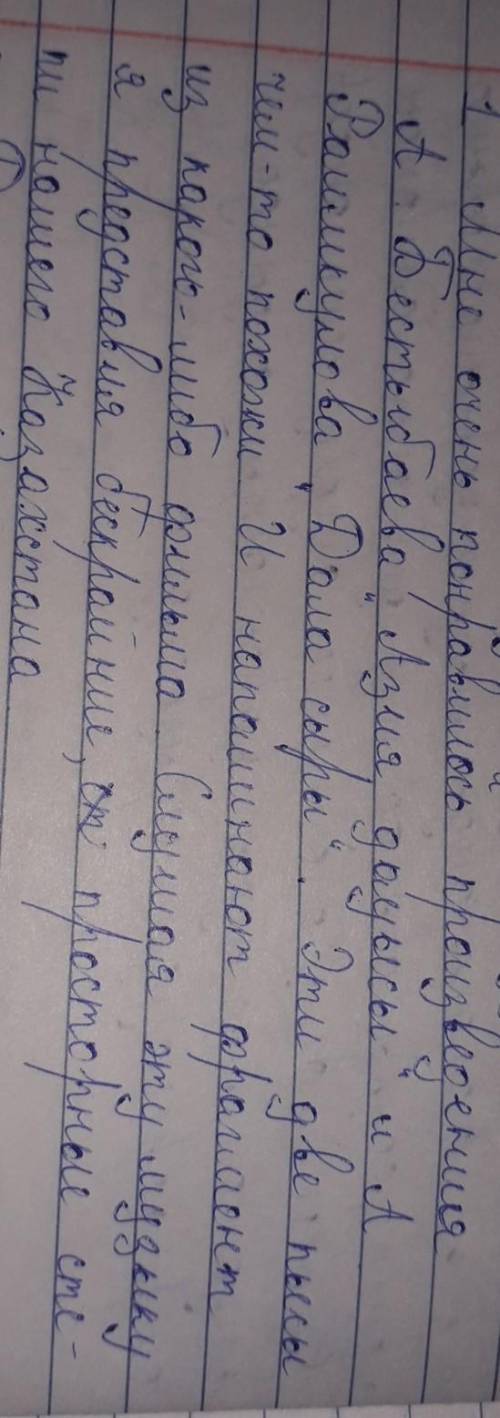 1 Мне очень понравилось произведения
А. Бестыбаева "Азия дауысы" и А
Раимкулова "Дала сыры". Эти две пьесы
чем-то похожи И напоминают фрагмент
из какого-либо фильма. Слушая эту музыку
я представил бескрайние, просторные сте-
пи нашего Казахстана